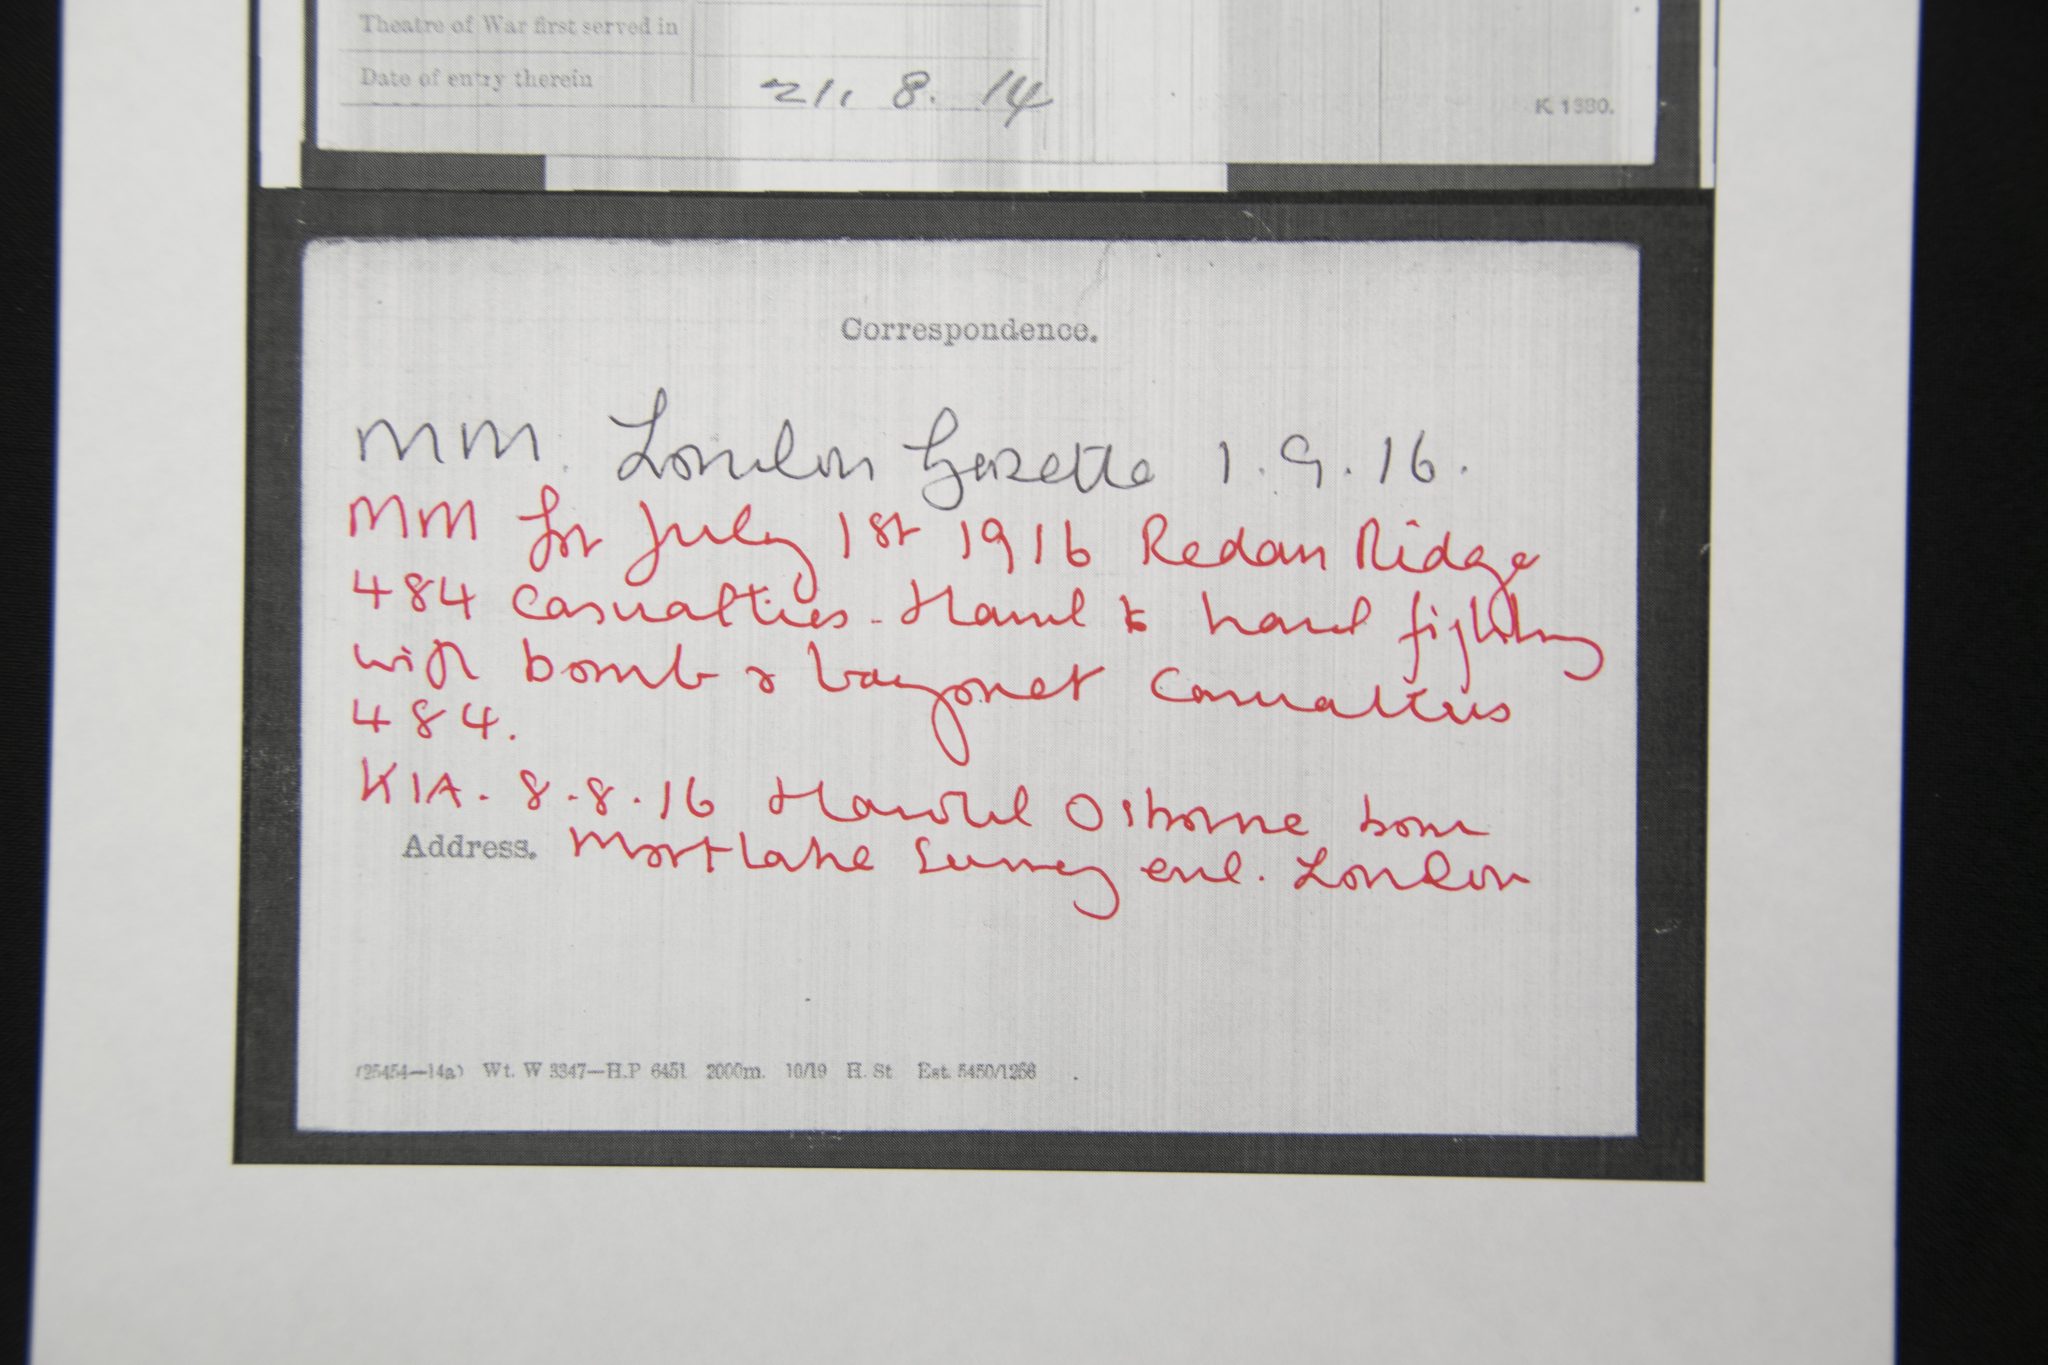 Theatre of War first served in
Date of entry therein 21. 8. 14
K. 1380.
Correspondence.
MM. London Gazette 1.9.16.
MM for July 1st 1916 Redan Ridge
484 casualties - Hand to hand fighting
with bomb & bayonet casualties
484.
KIA. 8.8.16 Harold Osborne born
Address. Mortlake Surrey enl. London
(25454—14a) Wt. W 3347—H.P 6451 2000m. 10/19 H. St Est. 5450/1256